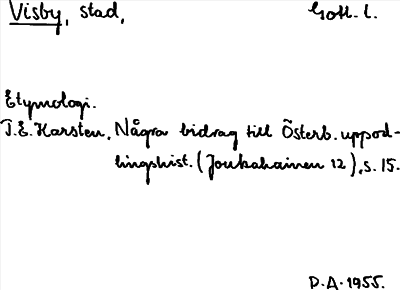 Visby, stad, Gotl. l.
Etymologi.
T.E. Karsten, Några bidrag till Österb. uppod-
lingshist. (Joukahainen 12), s. 15.
D.A. 1955.